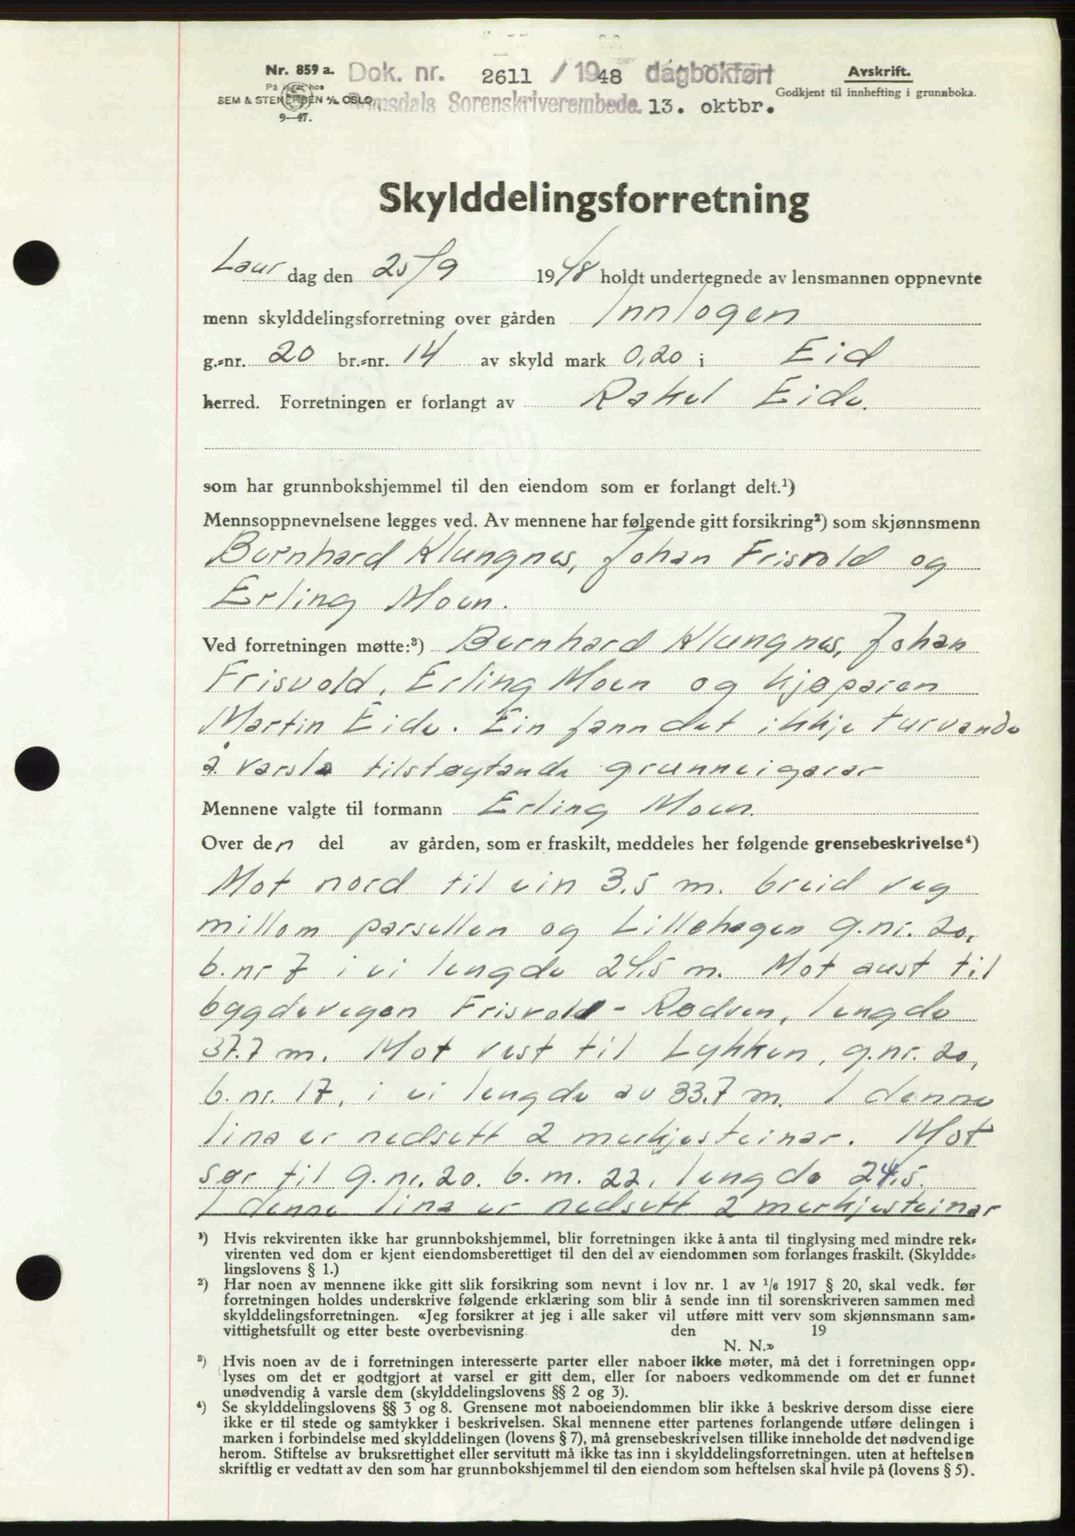 Nr. 859 a. Dok. nr. 2611 / 1948 dagbokført Avskrift.
På lager hos Godkjent til innhefting i grunnboka.
SEM & STENERSEN A/S OSLO. Romsdals Sorenskriverembede. 13. oktbr.
9—47.
Skylddelingsforretning
Laur dag den 25/9 1948 holdt undertegnede av lensmannen oppnevnte
menn skylddelingsforretning over gården Innlogen
g.-nr. 20 br.-nr. 14 av skyld mark 0,20 i Eid
herred. Forretningen er forlangt av Rakel Eide.
som har grunnbokshjemmel til den eiendom som er forlangt delt.¹)
Mennsoppnevnelsene legges ved. Av mennene har følgende gitt forsikring²) som skjønnsmenn
Bernhard Klungnes, Johan Frisvold og
Erling Moen.
Ved forretningen møtte:³) Bernhard Klungnes, Johan
Frisvold, Erling Moen og kjøparen
Martin Eide. Ein fann det ikkje turvande
å varsla tilstøytande grunneigarar
Mennene valgte til formann Erling Moen.
Over den del av gården, som er fraskilt, meddeles her følgende grensebeskrivelse⁴)
Mot nord til ein 3.5 m. breid veg
millom parsellen og Lillehagen g.nr. 20,
b.nr 7 i ei lengde 24,5 m. Mot aust til
bygdevegen Frisvold - Rødven, lengde
37.7 m. Mot vest til Lykken, g.nr. 20,
b.nr. 17, i ei lengde av 33.7 m. I denne
lina er nedsett 2 merkjesteinar. Mot
sør til g.nr. 20. b.nr. 22, lengde 24,5.
I denne lina er nedsett 2 merkjesteinar
¹) Hvis rekvirenten ikke har grunnbokshjemmel, blir forretningen ikke å anta til tinglysing med mindre rek-
virenten ved dom er kjent eiendomsberettiget til den del av eiendommen som forlanges fraskilt. (Skyldde-
lingslovens § 1.)
²) Har noen av mennene ikke gitt slik forsikring som nevnt i lov nr. 1 av ¹/₆ 1917 § 20, skal vedk. før
forretningen holdes underskrive følgende erklæring som blir å sende inn til sorenskriveren sammen med
skylddelingsforretningen. «Jeg forsikrer at jeg i alle saker vil utføre mitt verv som skjønnsmann sam-
vittighetsfullt og etter beste overbevisning den 19
N. N.»
³) Hvis noen av de i forretningen interesserte parter eller naboer ikke møter, må det i forretningen opp-
lyses om det er godtgjort at varsel er gitt dem, eller for naboers vedkommende om det er funnet
unødvendig å varsle dem (skylddelingslovens §§ 2 og 3).
⁴) Se skylddelingslovens §§ 3 og 8. Grensene mot naboeiendommen blir ikke å beskrive dersom disse eiere
ikke er til stede og samtykker i beskrivelsen. Skal mennene etter partenes forlangende utføre delingen i
marken i forbindelse med skylddelingen (lovens § 7), må grensebeskrivelsen tillike inneholde det nødvendige
herom. Stiftelse av bruksrettighet eller servitutt må ikke tas inn i skylddelingsforretningen. uten at heftelsen
skriftlig er vedtatt av den som har grunnbokshjemmel til den eiendom som heftelsen skal hvile på (lovens § 5).